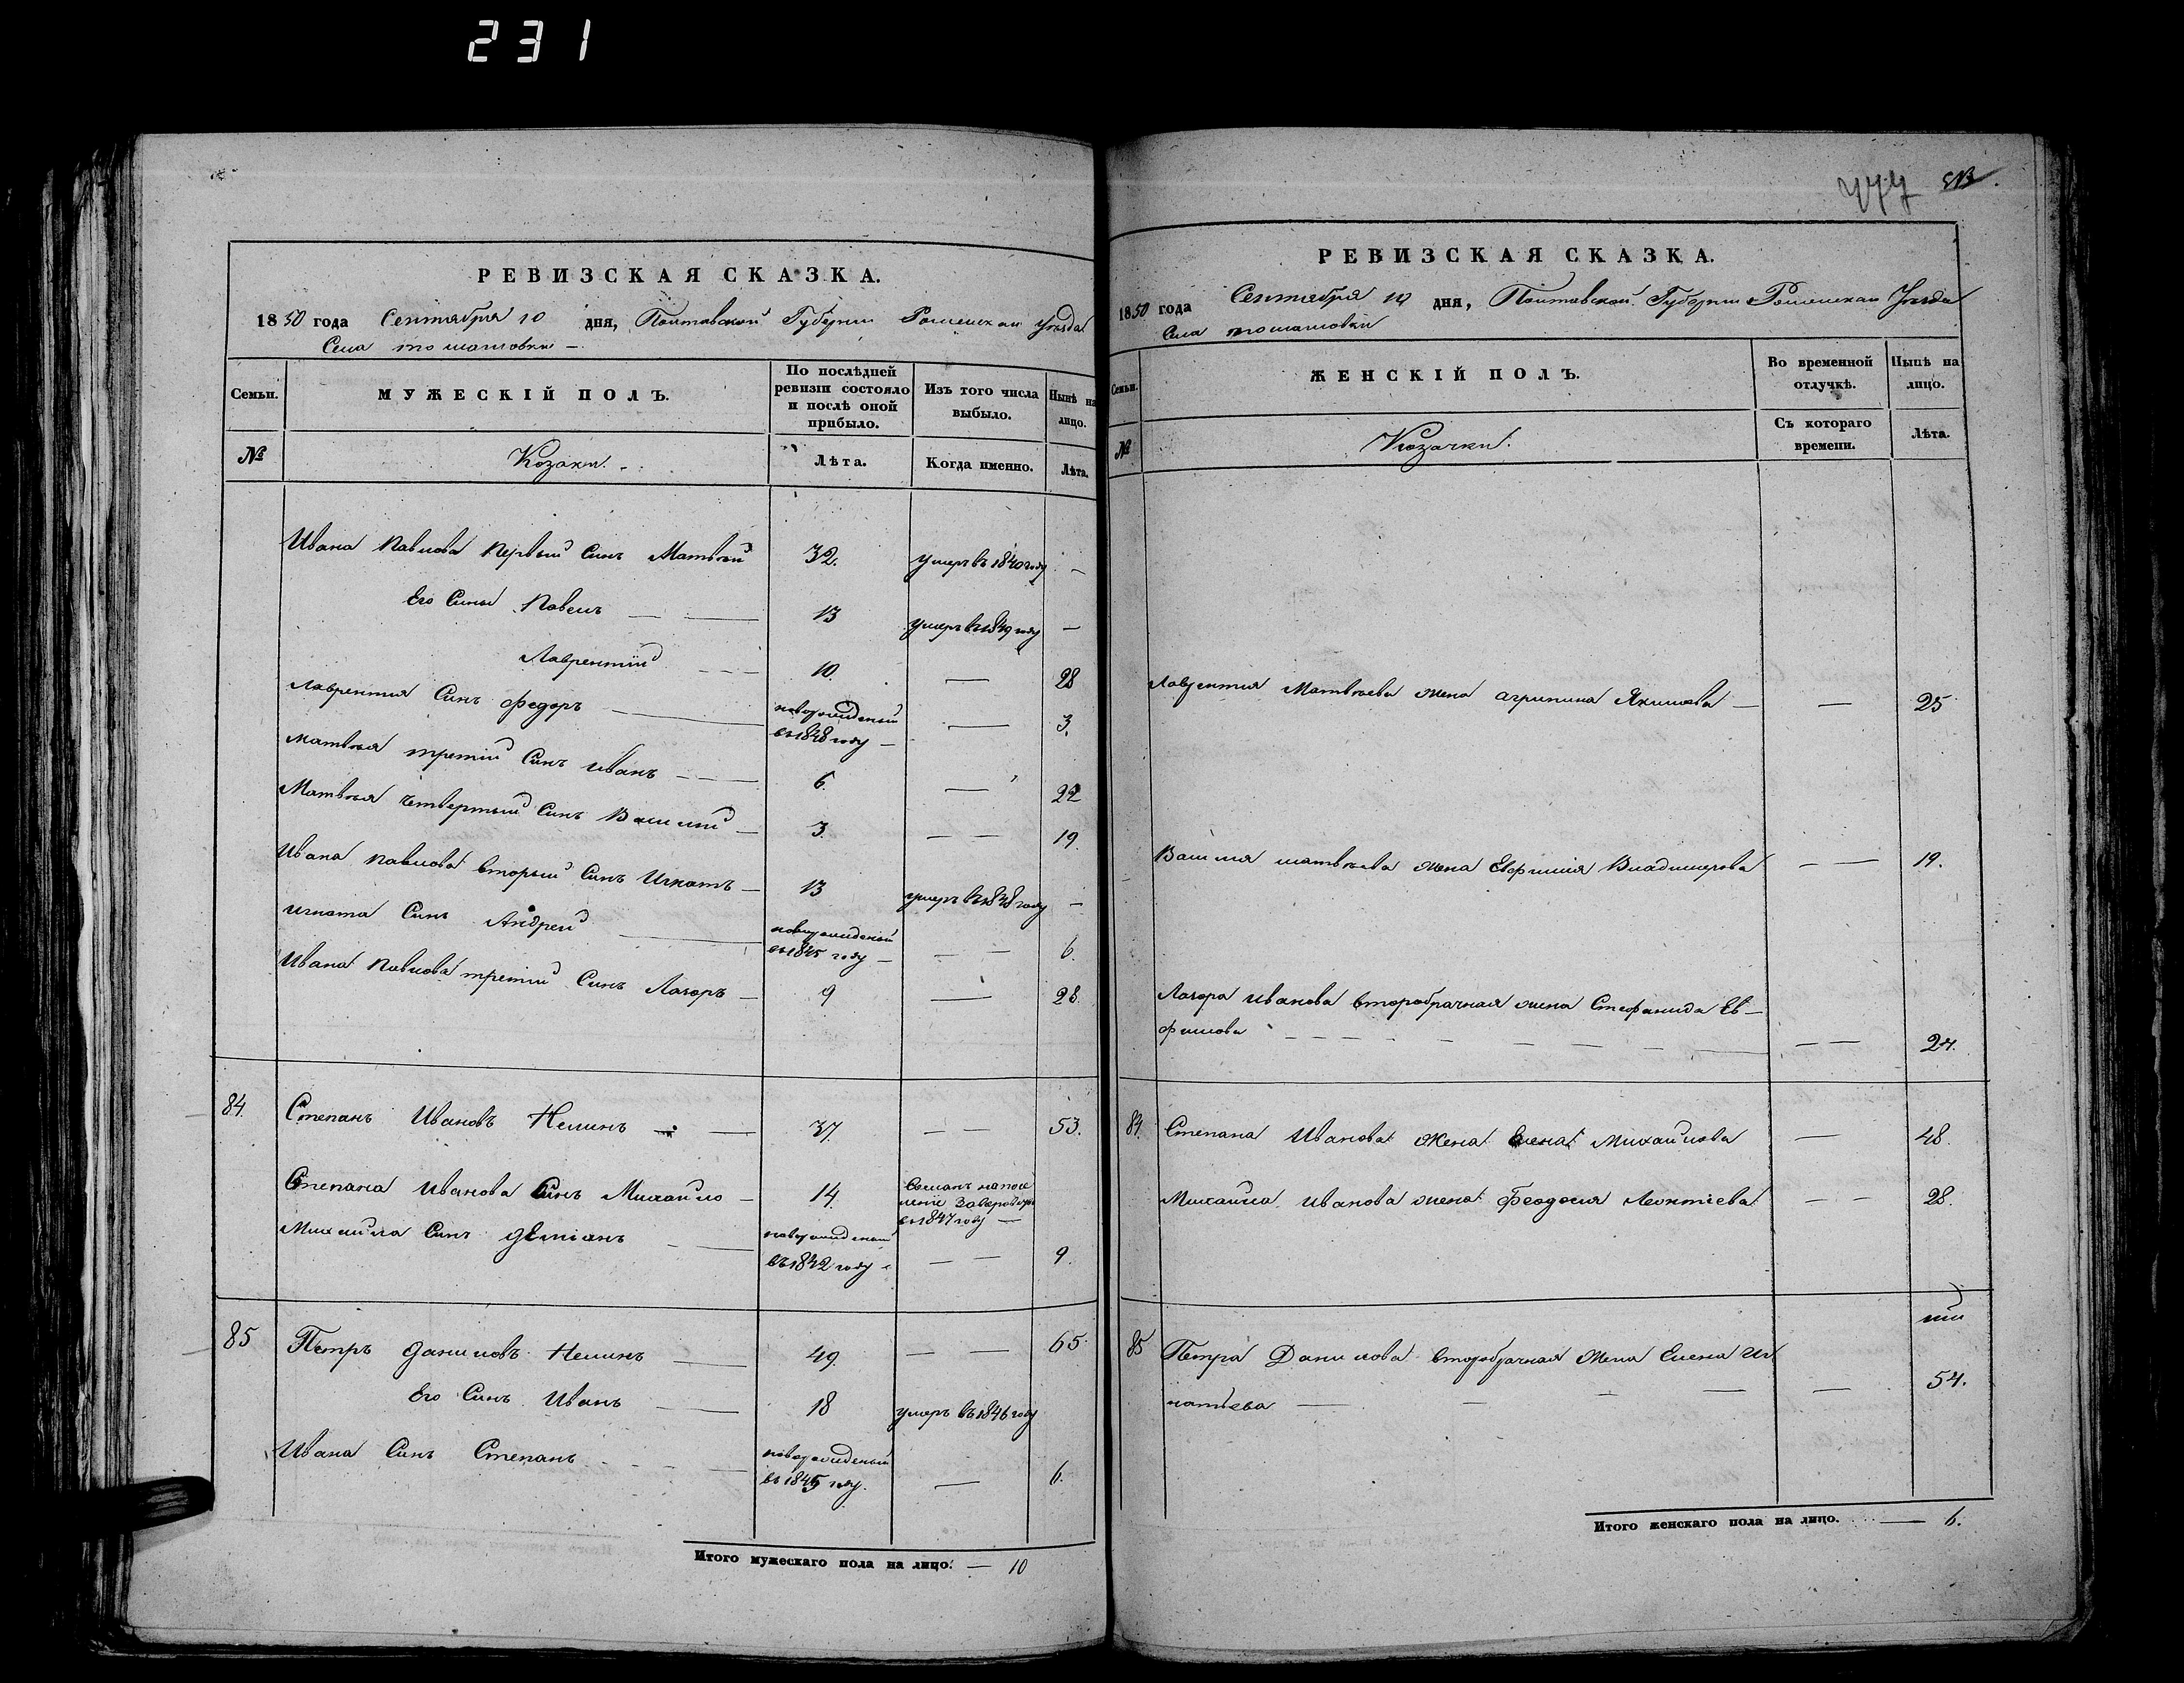 231
513
РЕВИЗСКАЯ СКАЗКА.
1850 года Сентября 10 дня, Полтавской Губернии Роменскаго Уезда
Села
Семьи.
МУЖЕСКІЙ ПОЛЪ.
По послѣдней ревизіи состояло и послѣ оной прибыло.
Изъ того числа выбыло.
Нынѣ на лицо.
№
Козаки.
Лѣта.
Когда именно.
Лѣта.
Ивана Павлова первый Синъ Матвѣй 32. умеръ въ 1840 году —
Его Сины Павелъ 13 умеръ въ 1849 году —
Лаврентій 10. — 28
Лаврентия Синъ Федоръ новорожденый въ 1848 году — 3.
Матвѣя третій Синъ Иванъ 6. — 22
Матвѣя четвертый Синъ Василій 3. — 19.
Ивана Павлова вторый Синъ Игнатъ 13 умеръ въ 1848 году —
Игната Синъ Андрей новорожденый въ 1845 году — 6.
Ивана Павлова третій Синъ Лазоръ 9 — 28.
84. Степанъ Ивановъ Нелинъ 37. — 53.
Степана Иванова Синъ Михайло 14. въ 1847 году —
Михайла Синъ Деміянъ новорожденый въ 1842 году — 9.
85 Петръ Даниловъ Нелинъ 49. — 65.
Его Синъ Иванъ 18 умеръ въ 1846 году
Ивана Синъ Степанъ новорожденый въ 1845 году. — 6.
Итого мужескаго пола на лицо. — 10
РЕВИЗСКАЯ СКАЗКА.
1850 года Сентября 10 дня, Полтавской Губернии Роменскаго Уезда
Села
Семьи.
ЖЕНСКІЙ ПОЛЪ.
Во временной отлучкѣ.
Нынѣ на лицо.
№
Козачки.
Съ котораго времени.
Лѣта.
Лаврентия Матвѣева жена Агрипина Якимова — 25
Василия Матвѣева жена Евфимия Владимерова — 19.
Лазора Иванова второбрачная жена Стефанида Ев-
фимова — 24.
84. Степана Иванова жена Елена Михайлова — 48.
Михайла Иванова жена Феодосия Леонтіева — 28.
85 Петра Данилова второбрачная жена Елена Иг
натьева — 54.
Итого женскаго пола на лицо. — 6.